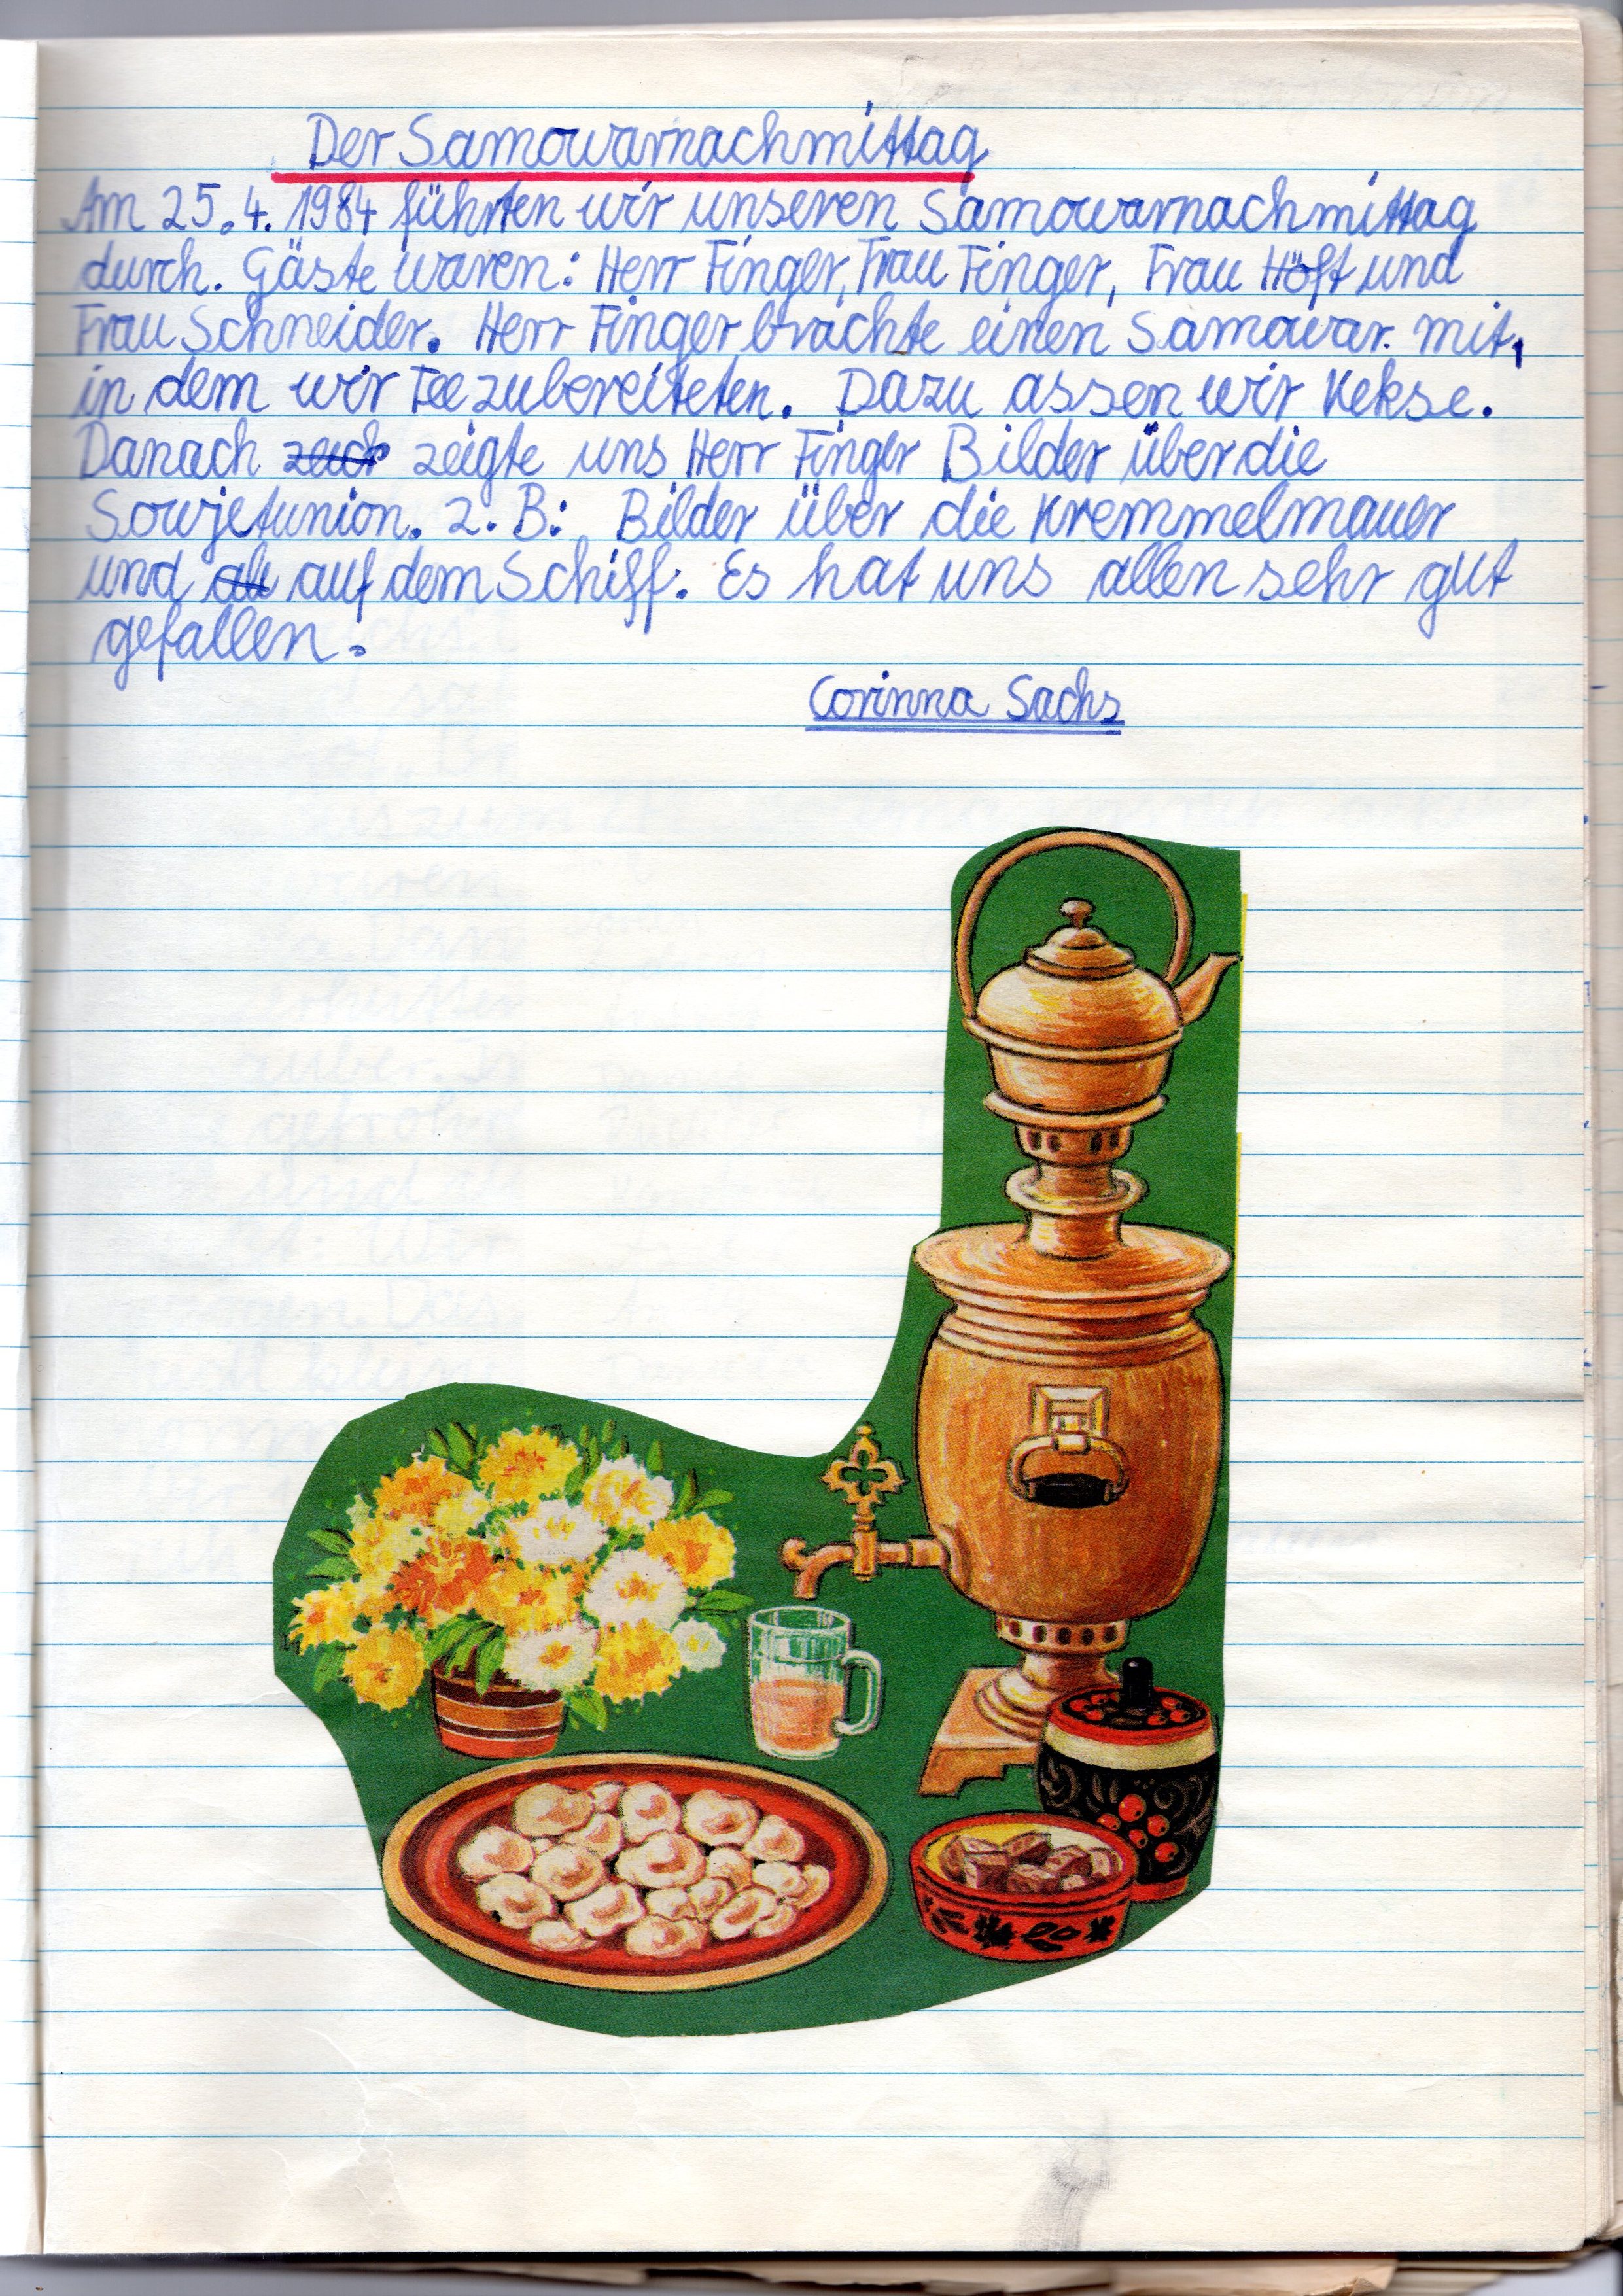 Der Samowarnachmittag
Am 25.4. 1984 führten wir unseren Samowarnachmittag
durch. Gäste waren: Herr Finger, Frau Finger, Frau Höft und
Frau Schneider. Herr Finger brachte einen Samowar mit,
in dem wir Tee zubereiteten. Dazu assen wir Kekse.
Danach zeigte uns Herr Finger Bilder über die
Sowjetunion. z. B: Bilder über die Kremmelmauer
und auf dem Schiff. Es hat uns allen sehr gut
gefallen.
Corinna Sachs